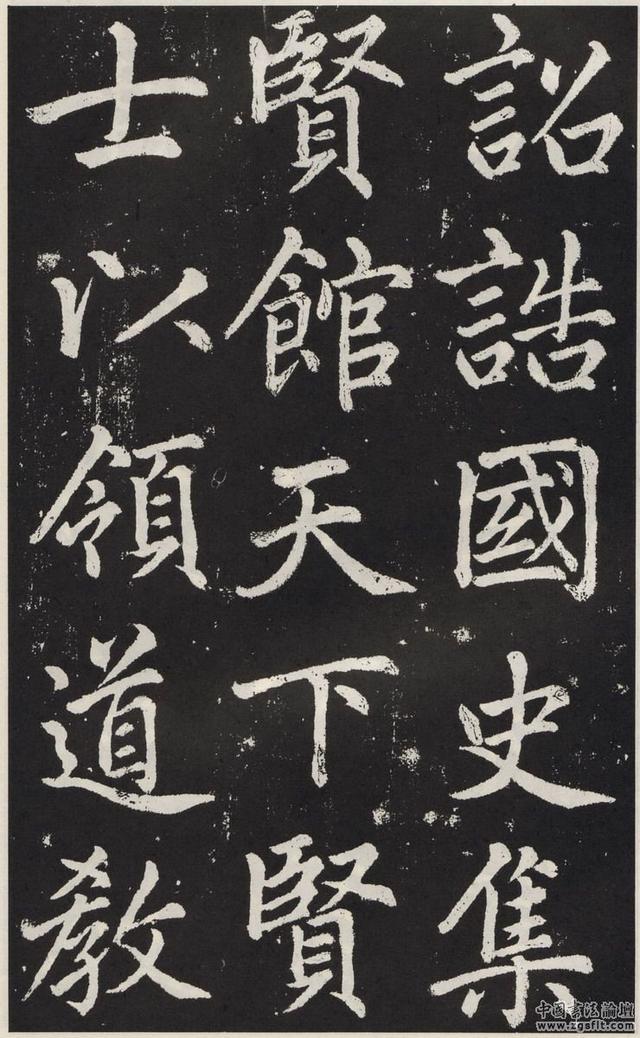 詔誥國史集
賢館天下賢
士以領道教
中国书法論壇
www.zgsflt.com